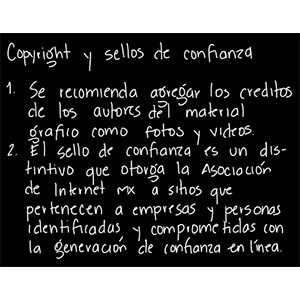 Copyright y sellos de confianza
1. Se recomienda agregar los creditos
de los autores del material
grafico como fotos y videos.
2. El sello de confianza es un dis-
tintivo que otorga la Asociación
de Internet MX a sitios que
pertenecen a empresas y personas
identificadas y comprometidas con
la generación de confianza en línea.